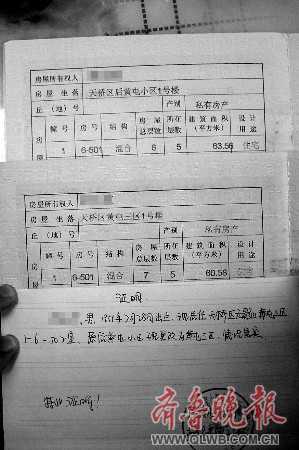 房屋所有权人
房屋坐落 天桥区后黄屯小区1号楼
丘(地)号 产别 私有房产
幢号 房号 结构 房屋总层数 所在层数 建筑面积(平方米) 设计用途
1 6-501 混合 6 5 63.56 住宅
房屋所有权人
房屋坐落 天桥区黄屯三区1号楼
丘(地)号 产别 私有房产
幢号 房号 结构 房屋总层数 所在层数 建筑面积(平方米) 设计用途
1 6-501 混合 7 5 60.58 住宅
证明
男,195 年2月28日出生,现居住天桥区 黄屯三区
1-6-50 室,原后黄屯小区现更改为黄屯三区,情况属实。
特此证明!
齐鲁晚报
WWW.QLWB.COM.CN